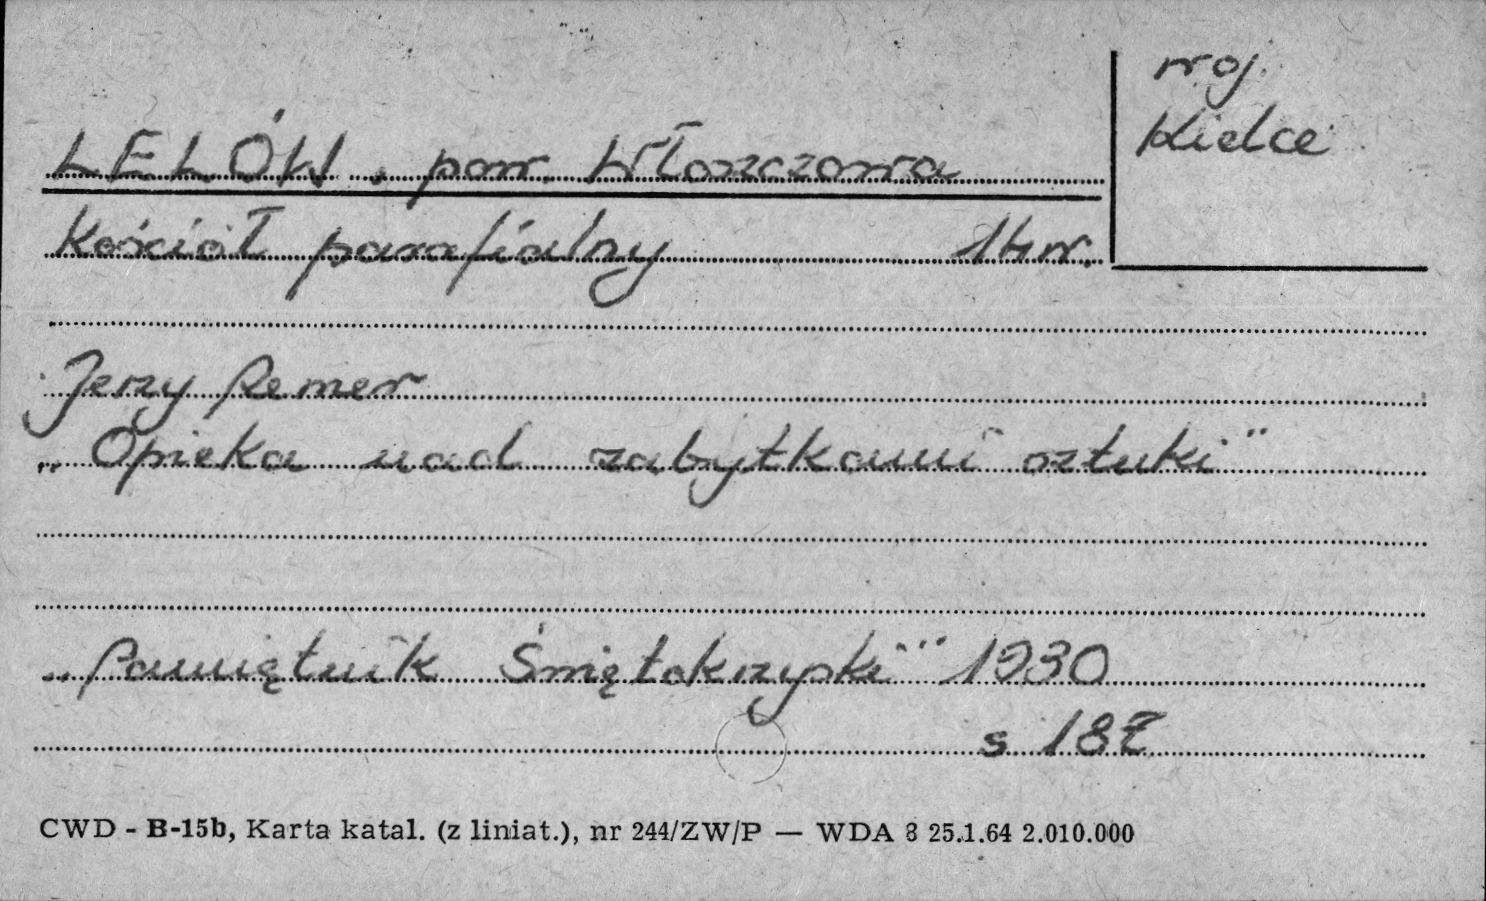 woj.
Kielce
LELÓW. pow. Włoszczowa
Kościół parafialny 14 w.
Jerzy Remer
„Opieka nad zabytkami sztuki"
„Pamiętnik Świętokrzyski" 1930
s 187
CWD - B-15b, Karta katal. (z liniat.), nr 244/ZW/P — WDA 8 25.1.64 2.010.000